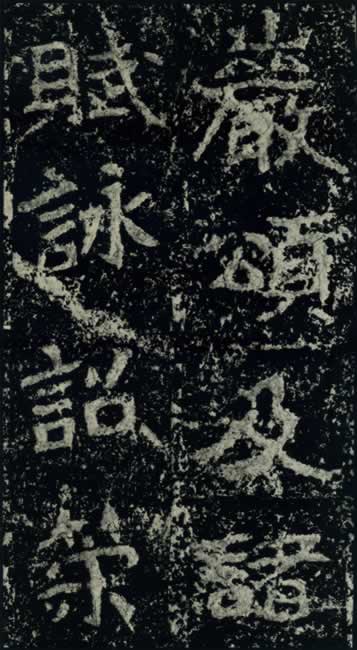 巖頌及諸
賦詠詔策